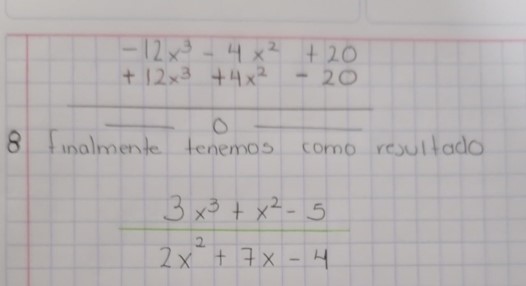 -12x³ - 4x² + 20
+12x³ +4x² - 20
0
8 finalmente tenemos como resultado
3x³ + x² - 5
2x² + 7x - 4